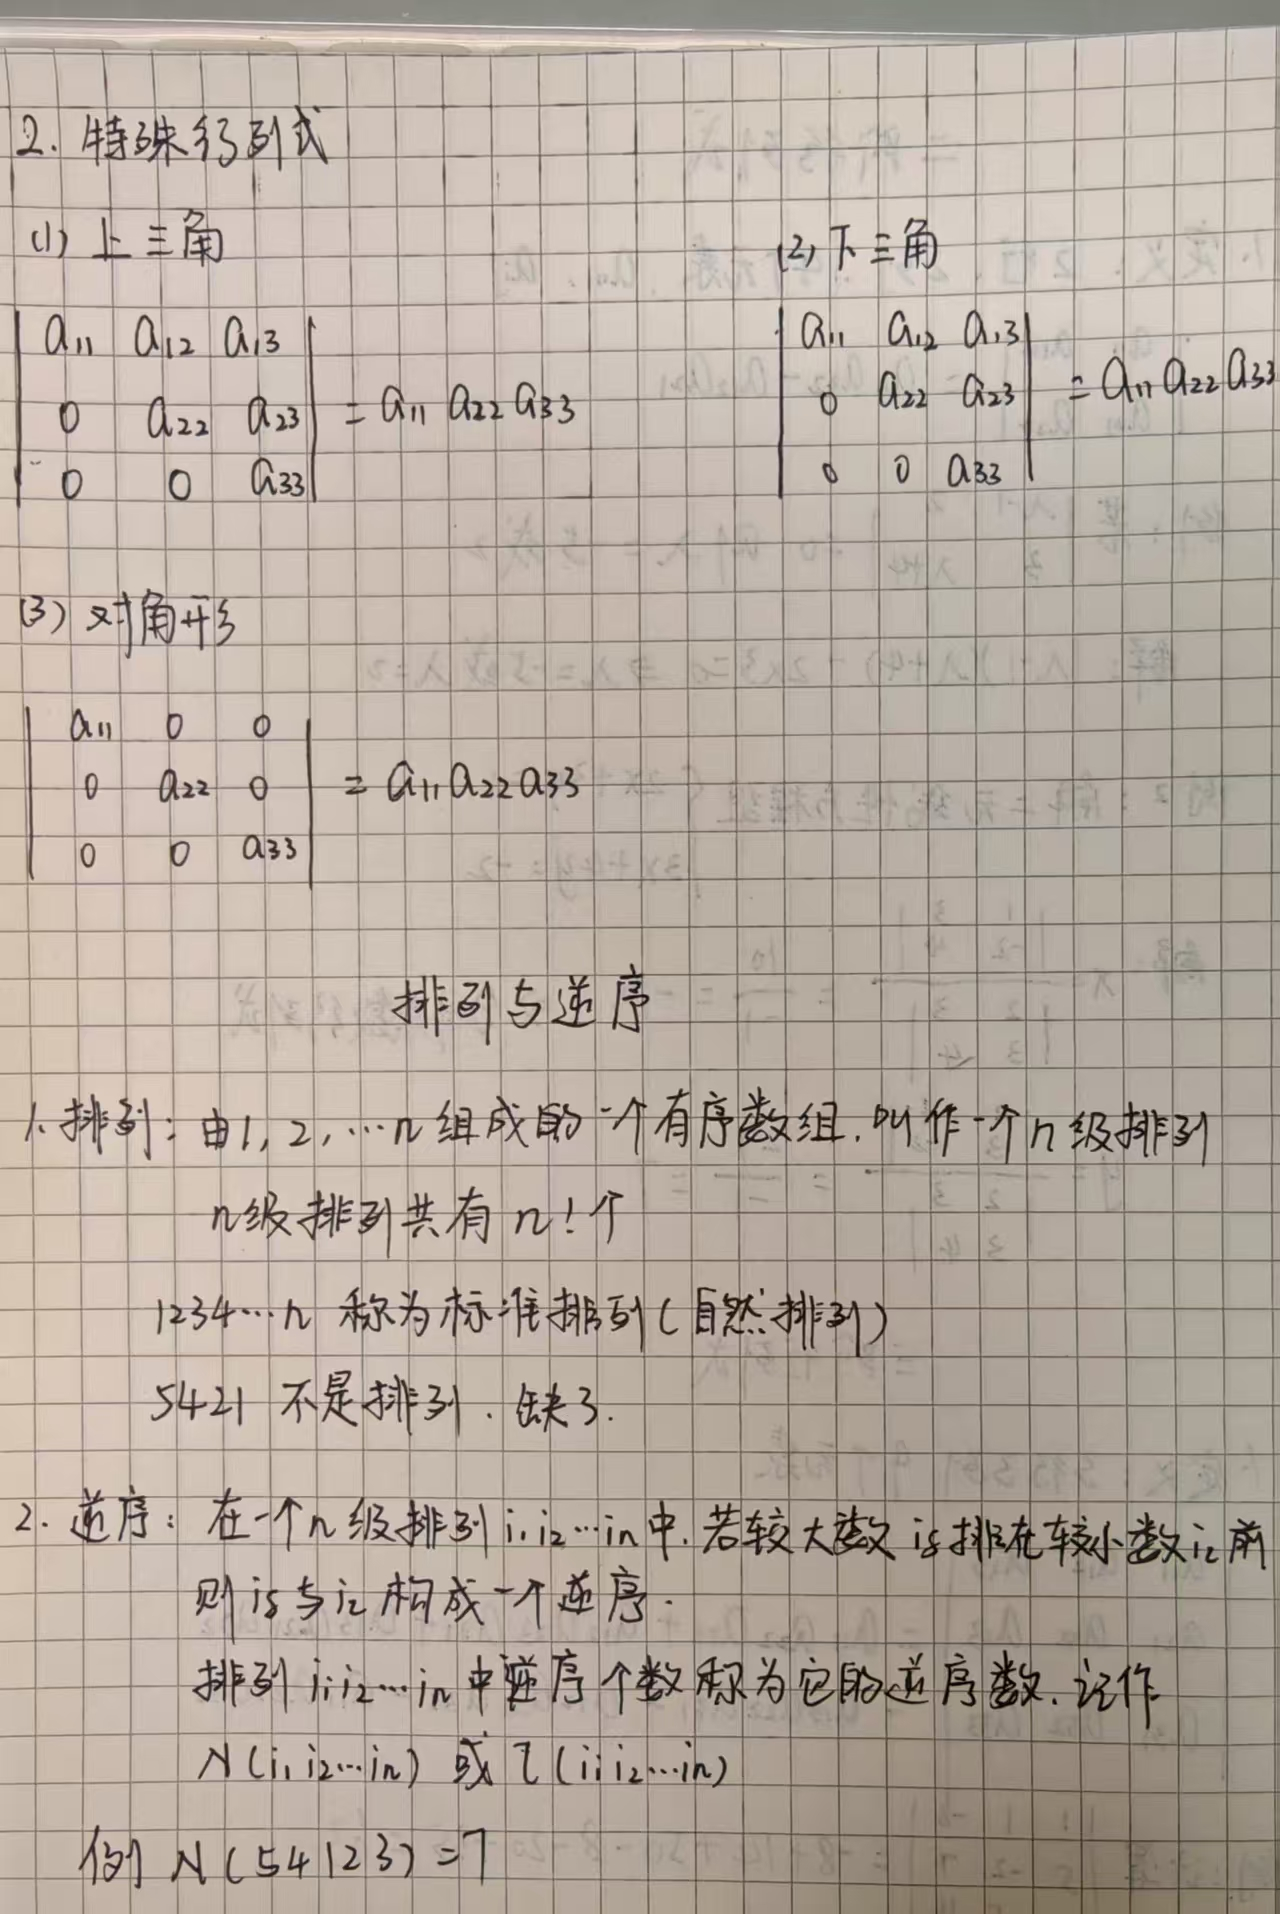 2. 特殊行列式
(1) 上三角
a11 a12 a13
0 a22 a23 = a11 a22 a33
0 0 a33
(2) 下三角
a11 a12 a13
0 a22 a23 = a11 a22 a33
0 0 a33
(3) 对角形
a11 0 0
0 a22 0 = a11 a22 a33
0 0 a33
排列与逆序
1. 排列: 由1, 2, …n 组成的一个有序数组. 叫作一个n级排列
n级排列共有 n! 个
1234…n 称为标准排列(自然排列)
5421 不是排列. 缺3.
2. 逆序: 在一个n级排列 i1 i2…in中. 若较大数 is排在较小数 i2 前
则is与i2 构成一个逆序.
排列 i1 i2…in 中逆序个数称为它的逆序数. 记作
N(i1 i2…in) 或 τ(i1 i2…in)
例 N(54123)=7